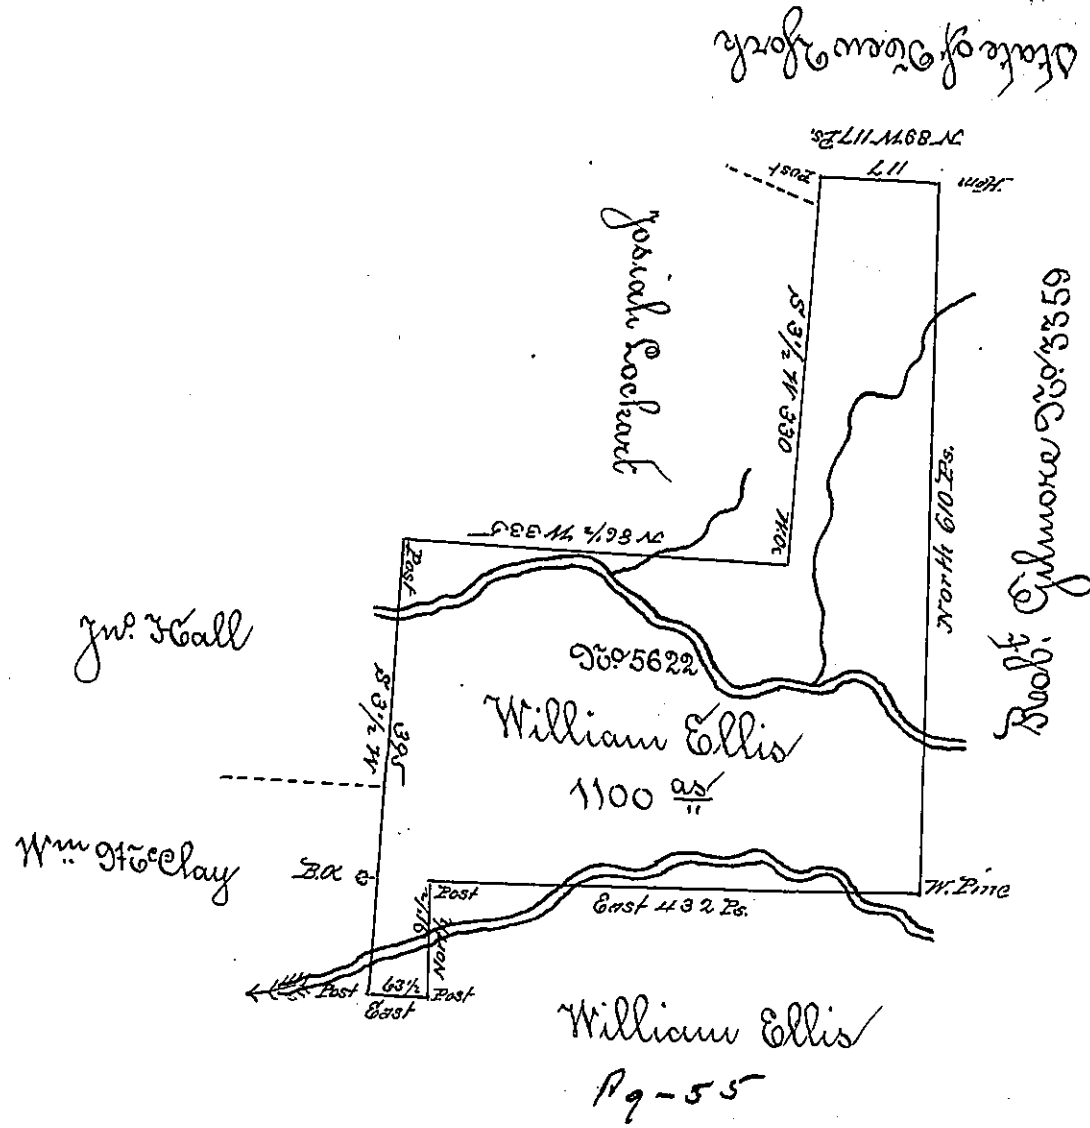 State of New York
N 89 W 117 Ps.
117
Post
Hem
Josiah Lockart
S 3½ W 330
Robt. Gilmore No. 3359
North 610 Ps.
N 86½ W 335
Post
Jno. Hall
No. 5622
S 3½ W
395
William Ellis
1100 as
Wm McClay
Post
W. Pine
East 432 Ps.
North
Post
63½
Post
East
William Ellis
Pg-55